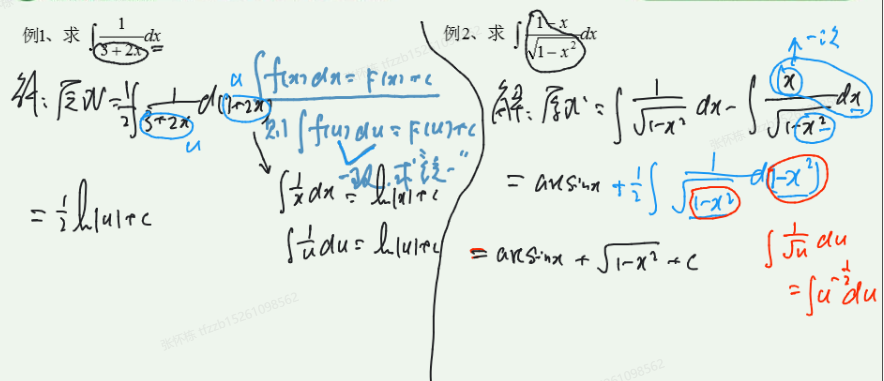 例1、求 ∫ 1/(3+2x) dx
解：原式 = 1/2 ∫ 1/(3+2x) d(3+2x)
u
u
∫f(x)dx = F(x)+c
则 ∫f(u)du = F(u)+c
∫ 1/x dx = ln|x|+c
∫ 1/u du = ln|u|+c
= 1/2 ln|u|+c
例2、求 ∫ (1-x)/√(1-x²) dx
→一次
解：原式 = ∫ 1/√(1-x²) dx - ∫ x/√(1-x²) dx
= arcsinx + 1/2 ∫ 1/√(1-x²) d(1-x²)
= arcsinx + √(1-x²) + c
∫ 1/√u du
= ∫ u^(-1/2) du
张怀栋 tfzzb15261098562